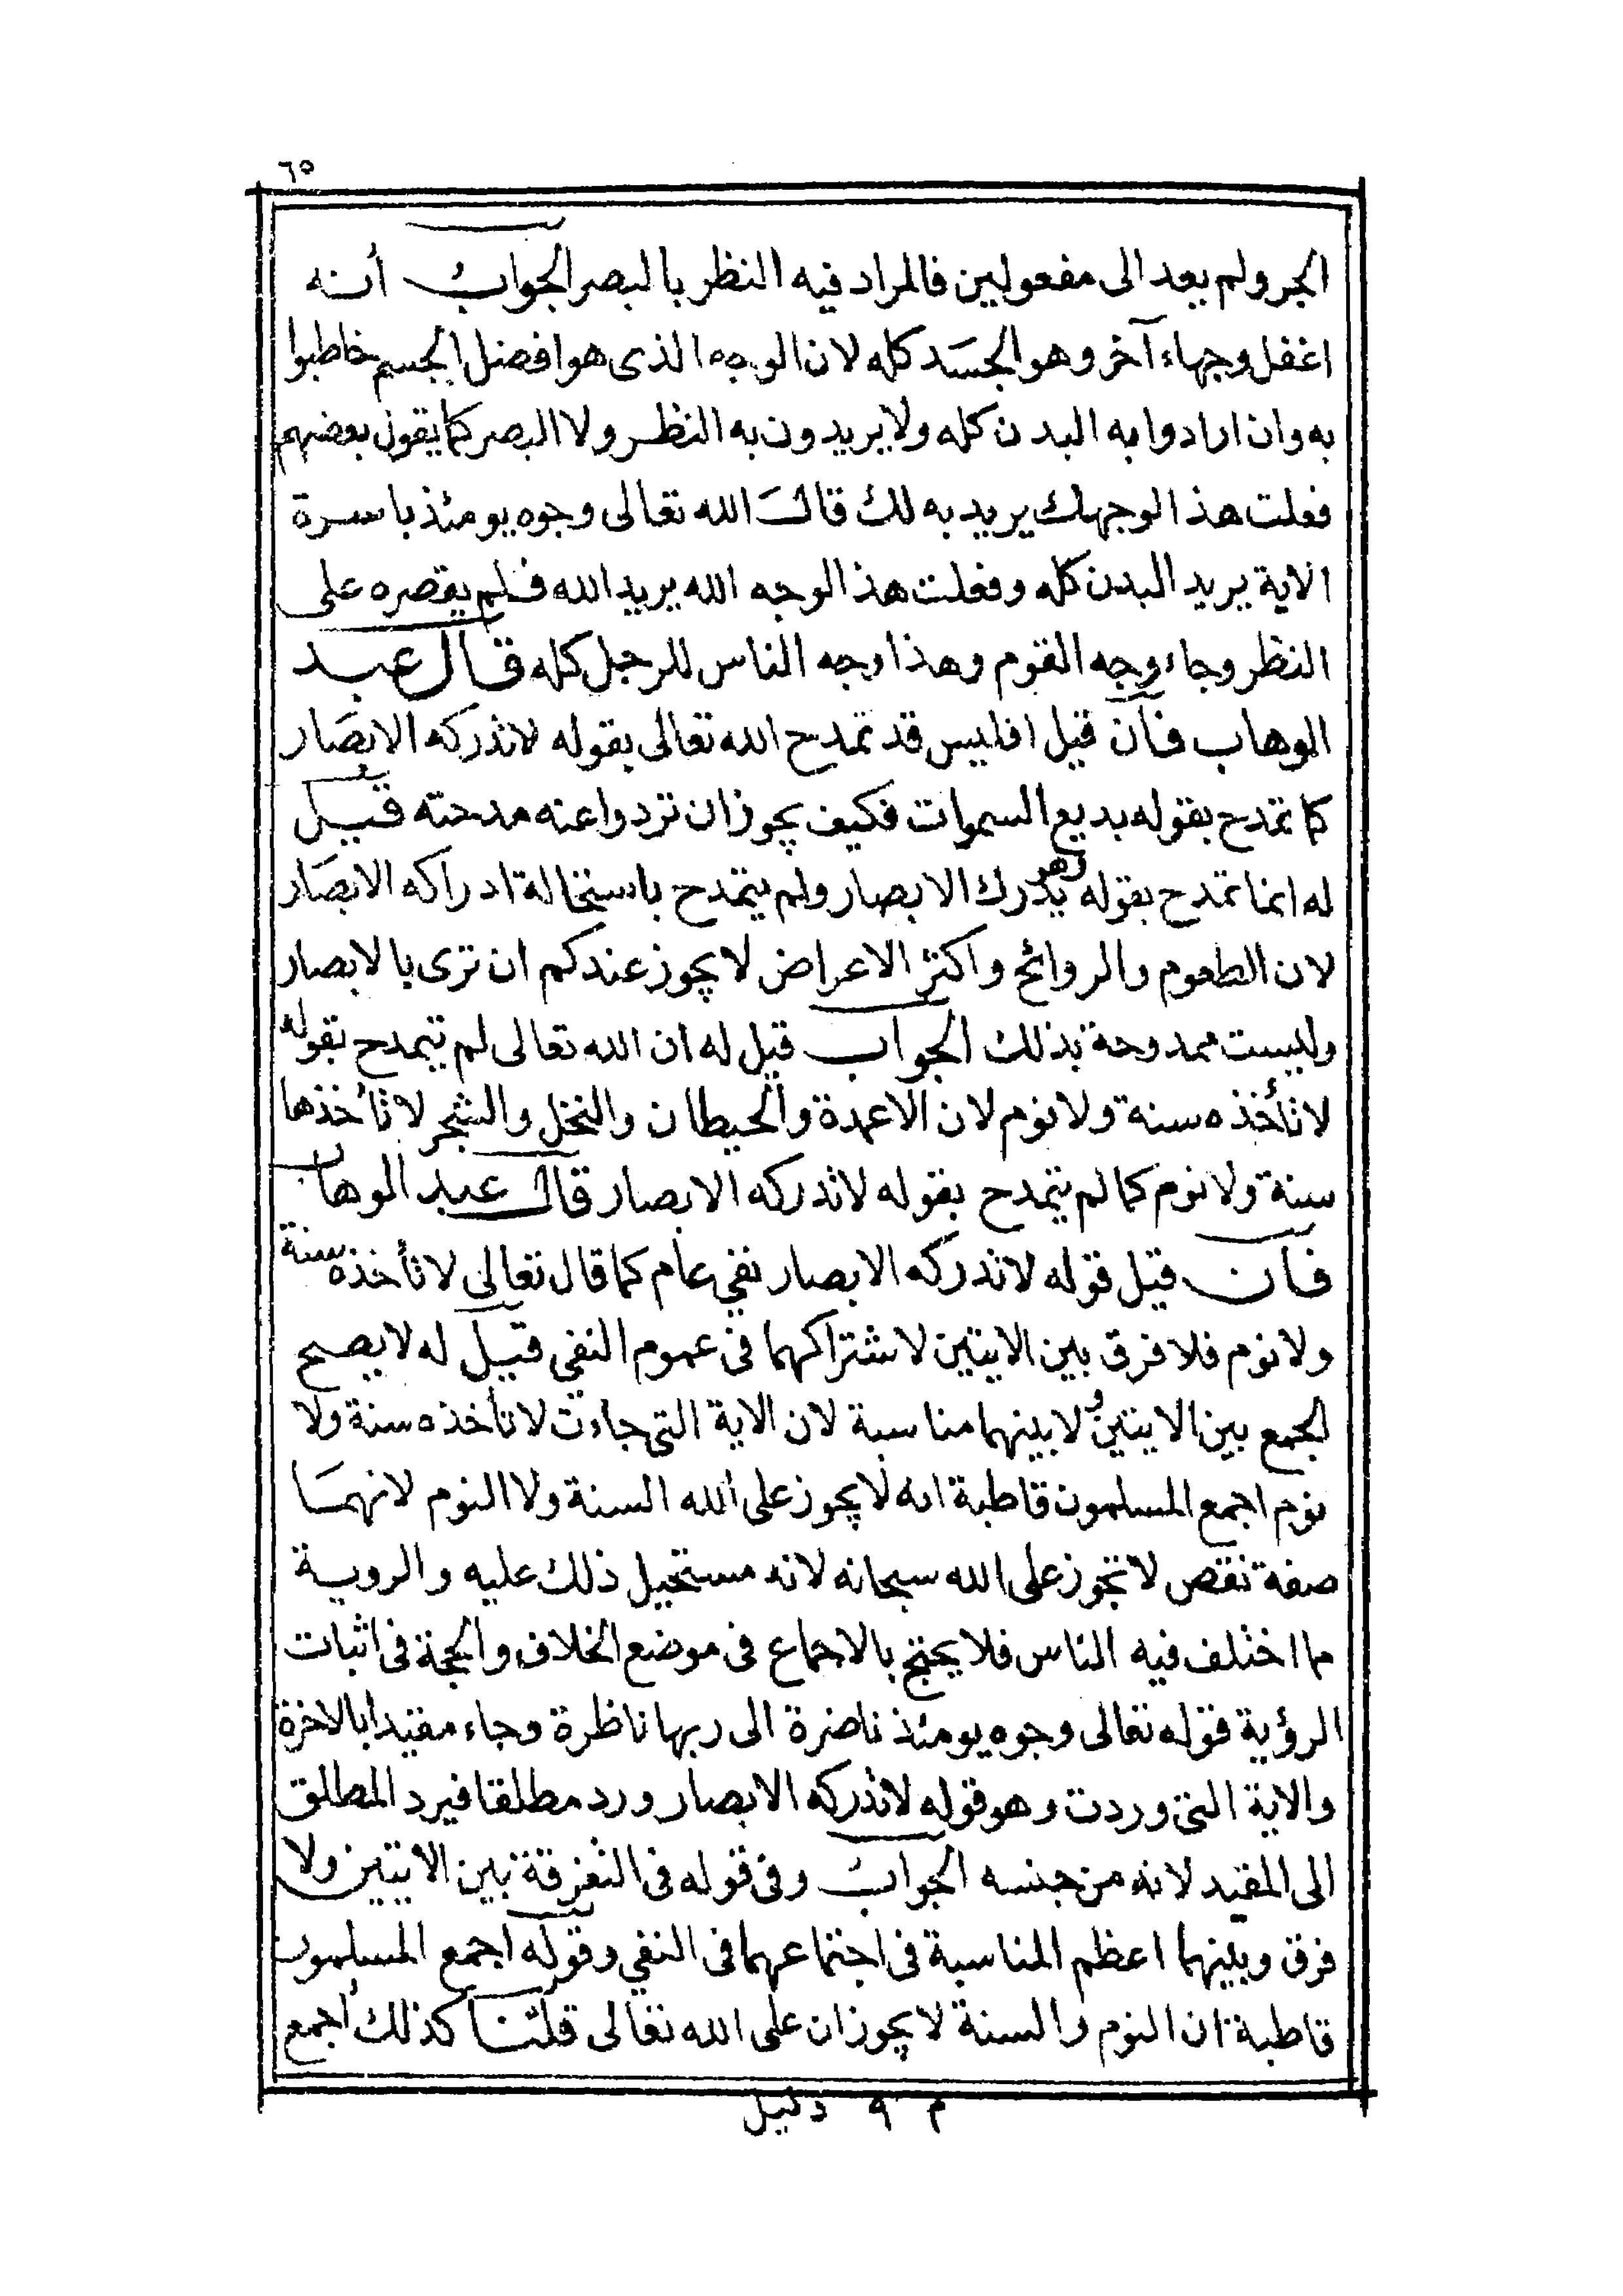 ٦٥
الجر ولم يعد الى مفعولين فالمراد فيه النظر بالبصر الجواب أنه
اغفل وجهاء آخر وهو الجسد كله لان الوجه الذى هو افضل الجسم خاطبوا
به وان ارادوا به البدن كله ولا يريدون به النظر ولا البصر كما يقول بعضهم
فعلت هذا لوجهك يريد به لك قال الله تعالى وجوه يومئذ باسرة
الاية يريد البدن كله وفعلت هذا لوجه الله يريد الله فلم يقصره على
النظر وجاء وجه القوم وهذا وجه الناس للرجل كله قال عبد
الوهاب فان قيل افليس قد تمدح الله تعالى بقوله لاتدركه الابصار
كما تمدح بقوله بديع السموات فكيف يجوز ان تردوا عنه مدحته قيل
له انما تمدح بقوله وهو يدرك الابصار ولم يتمدح باستحالة ادراكه الابصار
لان الطعوم والروائح واكثر الاعراض لا يجوز عندكم ان ترى بالابصار
وليست ممدوحة بذلك الجواب قيل له ان الله تعالى لم يتمدح بقوله
لا تأخذه سنة ولا نوم لان الاعمدة والحيطان والنخل والشجر لا تأخذها
سنة ولا نوم كما لم يتمدح بقوله لاتدركه الابصار قال عبد الوهاب
فان قيل قوله لاتدركه الابصار نفي عام كما قال تعالى لا تأخذه سنة
ولا نوم فلا فرق بين الايتين لاشتراكهما فى عموم النفي قيل له لا يصح
الجمع بين الايتين ولا بينهما مناسبة لان الاية التى جاءت لا تأخذه سنة ولا
نوم اجمع المسلمون قاطبة انه لا يجوز على الله السنة ولا النوم لانهما
صفة نقص لا تجوز على الله سبحانه لانه مستحيل ذلك عليه والروية
مما اختلف فيه الناس فلا يحتج بالاجماع فى موضع الخلاف والحجة فى اثبات
الرؤية قوله تعالى وجوه يومئذ ناضرة الى ربها ناظرة وجاء مقيدا بالاخرة
والاية التى وردت وهو قوله لاتدركه الابصار ورد مطلقا فيرد المطلق
الى المقيد لانه من جنسه الجواب وفى قوله فى التفرقة بين الايتين ولا
فرق وبينهما اعظم المناسبة فى اجتماعهما فى النفي وقوله اجمع المسلمون
قاطبة ان النوم والسنة لا يجوزان على الله تعالى قلنا كذلك أجمع
م ٩ دليل